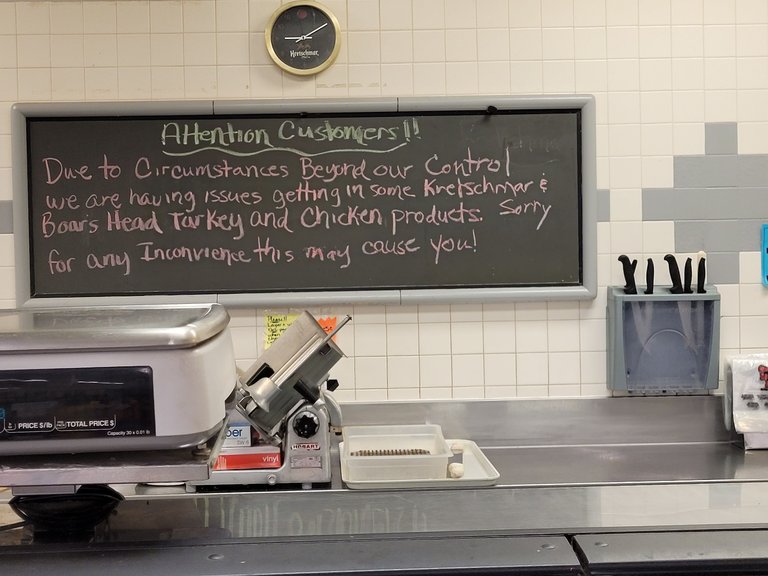 Kretschmar
Attention Customers!!
Due to Circumstances Beyond our Control
we are having issues getting in some Kretschmar &
Boars Head Turkey and Chicken products. Sorry
for any Inconvience this may cause you!
Please!!
PRICE $/lb TOTAL PRICE $
Capacity 30 x 0.01 lb
vinyl
HOBART